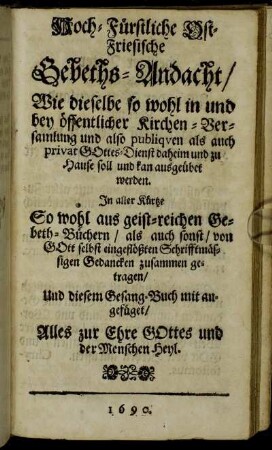 Hoch-Fürstliche Ost-
Friesische
Gebeths-Andacht/
Wie dieselbe so wohl in und
bey öffentlicher Kirchen-Ver-
samlung und also publiqven als auch
privat GOttes-Dienst daheim und zu
Hause soll und kan ausgeübet
werden.
In aller Kürtze
So wohl aus geist-reichen Ge-
beth-Büchern/ als auch sonst/ von
GOtt selbst eingeflößten Schrifftmäß-
sigen Gedancken zusammen ge-
tragen/
Und diesem Gesang-Buch mit an-
gefüget/
Alles zur Ehre GOttes und
der Menschen Heyl.
1690.